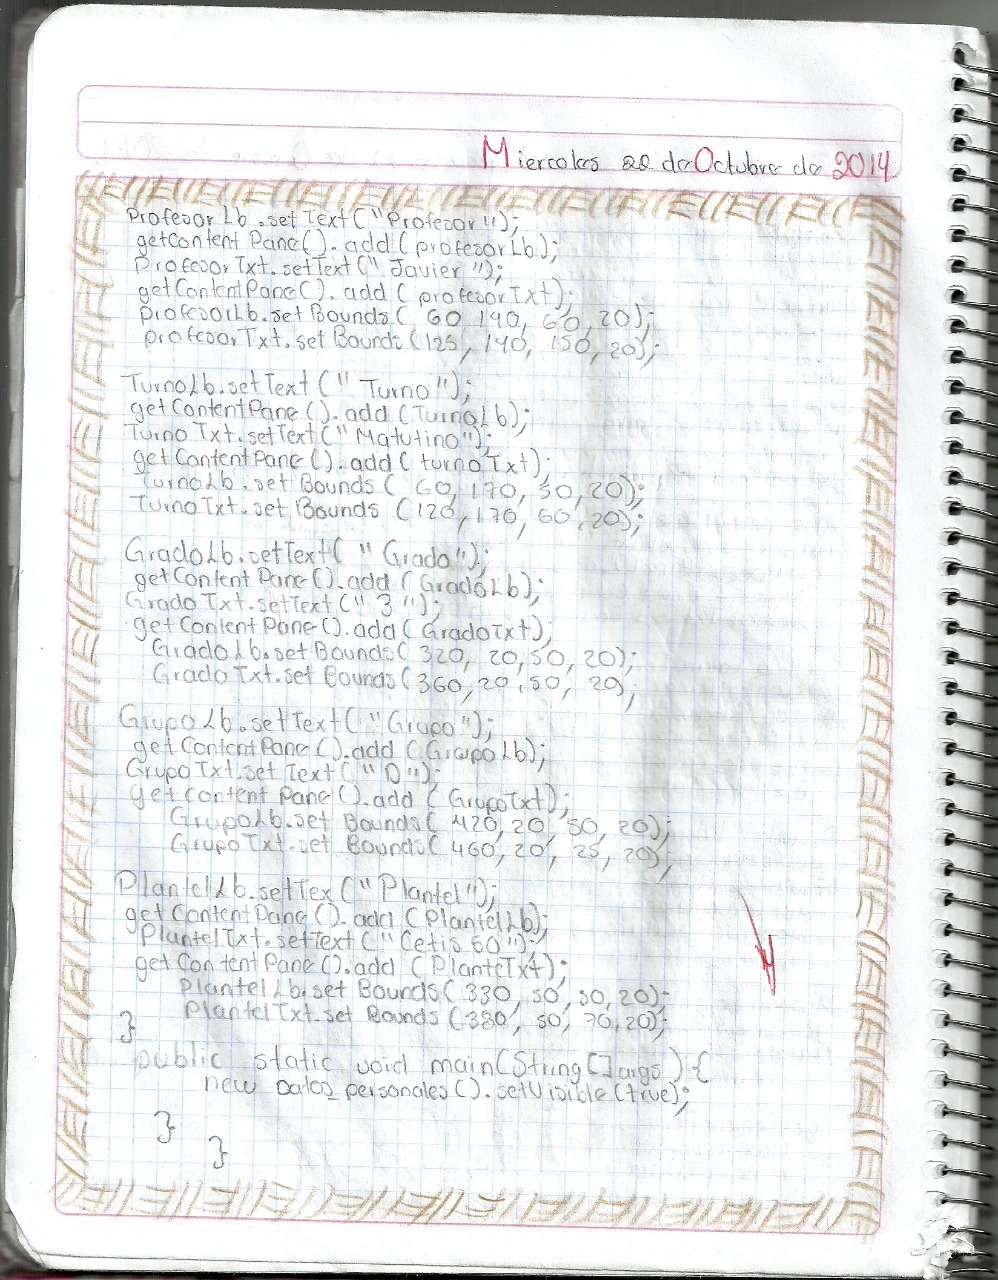 Miercoles 22 de Octubre de 2014
ProfesorLb.setText("Profesor");
getContentPane().add(profesorLb);
ProfesorTxt.setText("Javier");
getContentPane().add(profesorTxt);
profesorLb.setBounds(60,140,60,20);
profesorTxt.setBounds(125,140,150,20);
TurnoLb.setText("Turno");
getContentPane().add(TurnoLb);
TurnoTxt.setText("Matutino");
getContentPane().add(turnoTxt);
TurnoLb.setBounds(60,170,50,20);
TurnoTxt.setBounds(120,170,60,20);
GradoLb.setText("Grado");
getContentPane().add(GradoLb);
GradoTxt.setText("3");
getContentPane().add(GradoTxt);
GradoLb.setBounds(320,20,50,20);
GradoTxt.setBounds(360,20,50,20);
GrupoLb.setText("Grupo");
getContentPane().add(GrupoLb);
GrupoTxt.setText("D");
getContentPane().add(GrupoTxt);
GrupoLb.setBounds(420,20,50,20);
GrupoTxt.setBounds(460,20,25,20);
PlantelLb.setTex("Plantel");
getContentPane().add(PlantelLb);
PlantelTxt.setText("Cetis 60");
getContentPane().add(PlanteTxt);
PlantelLb.setBounds(330,50,50,20);
PlantelTxt.setBounds(380,50,70,20);
}
public static void main(String[]args){
new Datos_personales().setVisible(true);
}
}